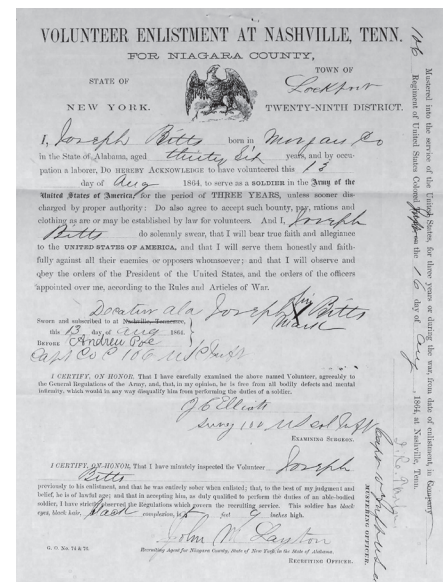 VOLUNTEER ENLISTMENT AT NASHVILLE, TENN.
FOR NIAGARA COUNTY,
STATE OF
NEW YORK.
TOWN OF
Lockport
TWENTY-NINTH DISTRICT.
I, Joseph Bitts born in Morgan Co
in the State of Alabama, aged thirty Six years, and by occu-
pation a laborer, Do HEREBY ACKNOWLEDGE to have volunteered this 13
day of Aug 1864, to serve as a SOLDIER in the Army of the
United States of America, for the period of THREE YEARS, unless sooner dis-
charged by proper authority: Do also agree to accept such bounty, pay, rations and
clothing as are or may be established by law for volunteers. And I, Joseph
Bitts do solemnly swear, that I will bear true faith and allegiance
to the UNITED STATES OF AMERICA, and that I will serve them honestly and faith-
fully against all their enemies or opposers whomsoever; and that I will observe and
obey the orders of the President of the United States, and the orders of the officers
appointed over me, according to the Rules and Articles of War.
Decatur Ala Joseph his X mark Bitts
Sworn and subscribed to at Nashville, Tennessee,
this 13 day of Aug 1864.
BEFORE Andrew Poe
Capt Co C 106 U S C Inft
I CERTIFY, ON HONOR, That I have carefully examined the above named Volunteer, agreeably to
the General Regulations of the Army, and, that, in my opinion, he is free from all bodily defects and mental
infirmity, which would in any way disqualify him from performing the duties of a soldier.
J C Elliott
Surg 110 U S Col Inft
EXAMINING SURGEON.
I CERTIFY, ON HONOR, That I have minutely inspected the Volunteer Joseph
Bitts
previously to his enlistment, and that he was entirely sober when enlisted; that, to the best of my judgment and
belief, he is of lawful age; and that in accepting him, as duly qualified to perform the duties of an able-bodied
soldier, I have strictly observed the Regulations which govern the recruiting service. This soldier has black
eyes, black hair, black complexion, is 5 feet 9 inches high.
John M Laxton
Recruiting Agent for Niagara County, State of New York in the State of Alabama.
RECRUITING OFFICER.
G. O. No. 74 & 75.
Mustered into the service of the United States, for three years or during the war, from date of enlistment, in Company
106 Regiment of United States Colored Inft on the 16 day of Aug, 1864, at Nashville, Tenn.
MUSTERING OFFICER.